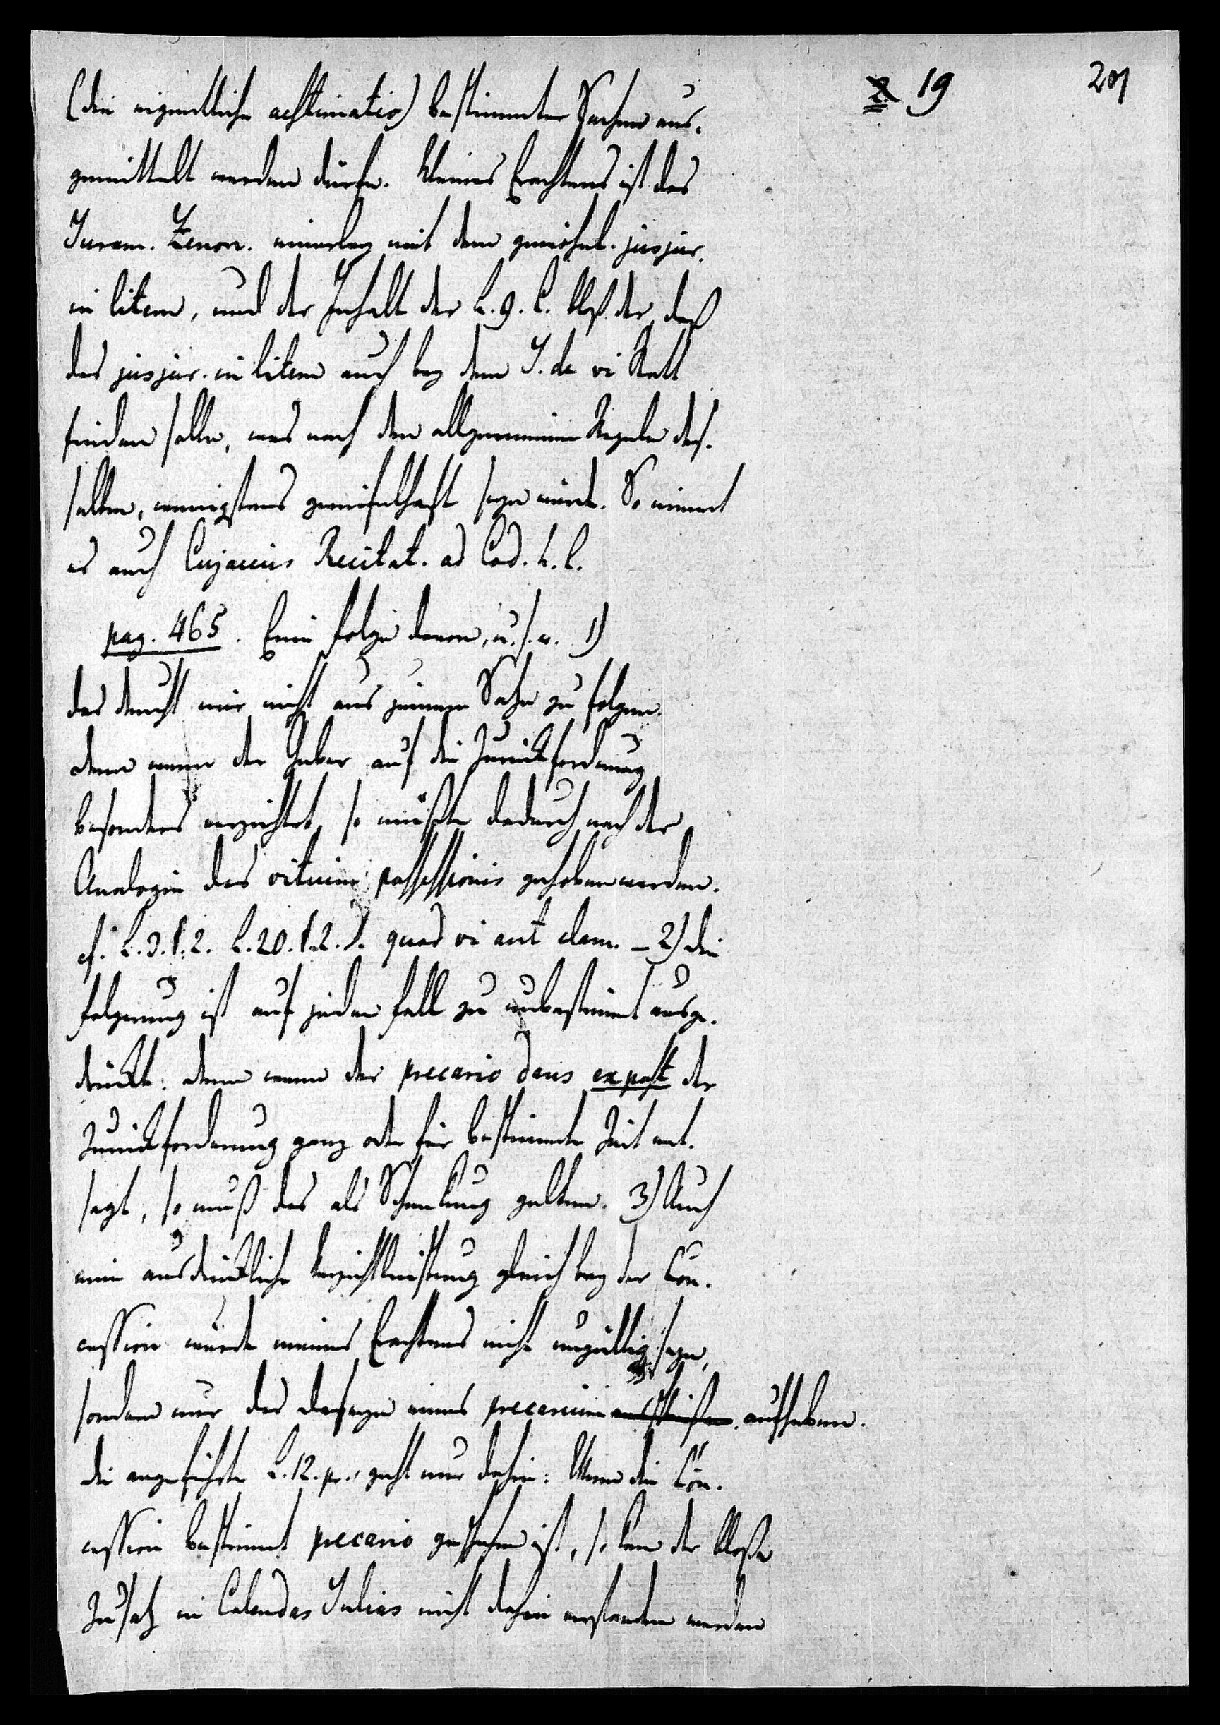 2 19
201
(die eigentliche aestimatio) bestimmter Sachen aus-
gemittelt werden dürfe. Meines Erachtens ist das
Juram. Zenon. einerley mit dem gewöhnl. jusjur.
in litem, und der Inhalt der L. 9. C. bloß der, daß
das jusjur. in litem auch bey dem J. de vi Statt
finden solle, was nach den allgemeinen Regeln des-
selben, wenigstens zweifelhaft seyn würde. So nimmt
es auch Cujacius Recitat. ad Cod. h. l.
pag. 465. Eine Folge davon, u. s. w. 1)
das deucht mir nicht aus jenem Satze zu folgen.
denn wenn der Geber auf die Zurückforderung
besonders verzichtet, so müßte dadurch nach der
Analogie das vitium possessionis gehoben werden.
cf. L. 3. §. 2. L. 20. §. 2. D. quod vi aut clam. – 2) die
Folgerung ist auf jeden Fall zu unbestimmt ausge-
drückt: denn wenn der precario dans ex post der
Zurückforderung ganz oder für bestimmte Zeit ent-
sagt, so muß das als Schenkung gelten. 3) Auch
eine ausdrückliche Verzichtleistung gleich bey der Con-
cession würde meines Erachtens nicht ungültig seyn,
sondern nur das Daseyn eines precarium aufheben.
die angeführte L. 12. pr. geht nur dahin: Wenn die Con-
cession bestimmt precario geschehen ist, so kann der bloße
Zusatz in Calendas Julias nicht dahin verstanden werden